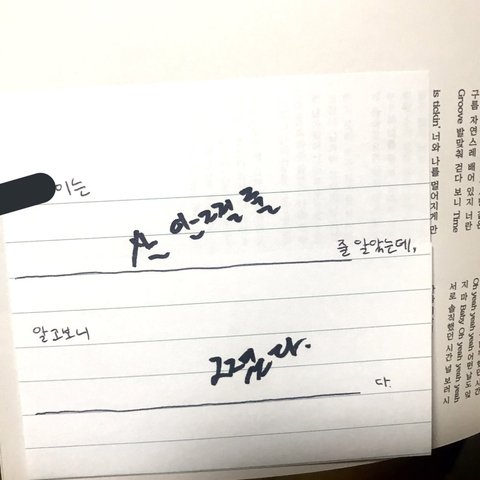 이는
안그럴 줄
줄 알았는데,
알고보니
그랬다.
다.
구름 자연스레 배어 있지 너란
Groove 발맞춰 걷다 보니 Time
is tickin' 너와 나를 멀어지게 만
Oh yeah yeah yeah
지 마 Baby Oh yeah yeah yeah
서로 솔직했던 시간 널 보러 시